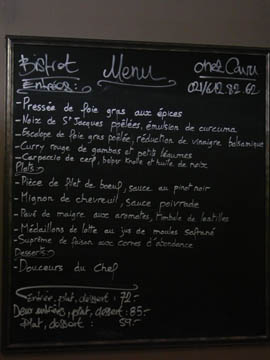 Bistrot Menu chez Cavu
Entrées: 021/612.82.62
-Pressée de foie gras aux épices
-Noix de St Jacques poêlées, émulsion de curcuma
-Escalope de foie gras poêlée, réduction de vinaigre balsamique
-Curry rouge de gambas et petits légumes
-Carpaccio de cerf, belper knolle et huile de noix
Plats:
-Pièce de filet de boeuf, sauce au pinot noir
-Mignon de chevreuil, sauce poivrade
-Pavé de maigre aux aromates, timbale de lentilles
-Médaillons de lotte au jus de moules safrané
-Suprême de faisan aux cornes d'abondance
Desserts:
-Douceurs du Chef
Entrée, plat, dessert: 72.-
Deux entrées, plat, dessert: 85.-
plat, dessert: 59.-